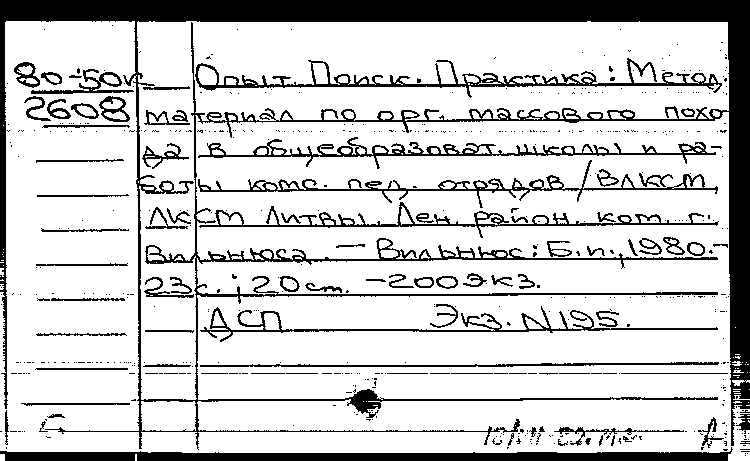 80-50к
2608
Опыт. Поиск. Практика: Метод.
материал по орг. массового похо-
да в общеобразоват. школы и ра-
боты комс. пед. отрядов / ВЛКСМ,
ЛКСМ Литвы. Лен. район. ком. г.
Вильнюса. — Вильнюс: Б.и., 1980.-
23с.; 20 ст. - 200экз.
ДСП Экз. N 195.